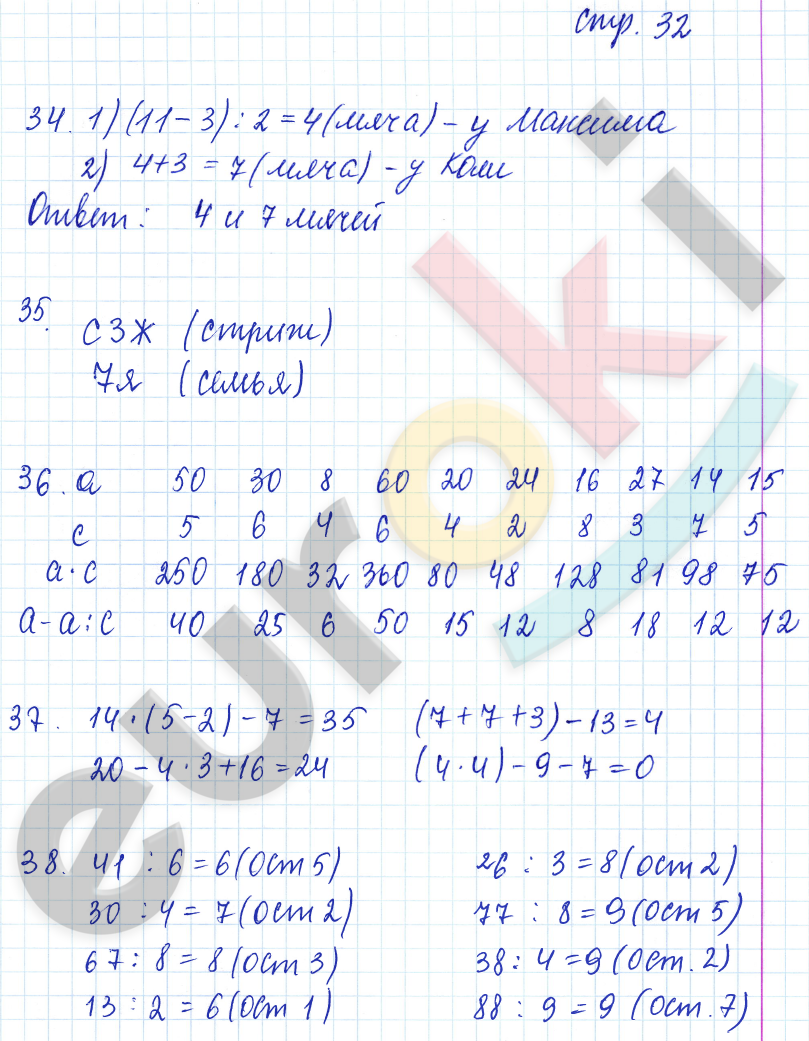 стр. 32
34. 1) (11 - 3) : 2 = 4 (мяча) - у Максима
2) 4 + 3 = 7 (мяча) - у Коли
Ответ: 4 и 7 мячей
35.
С З Ж (стриж)
7я (семья)
36. а 50 30 8 60 20 24 16 27 14 15
с 5 6 4 6 4 2 8 3 7 5
а · с 250 180 32 360 80 48 128 81 98 75
а - а : с 40 25 6 50 15 12 8 18 12 12
37. 14 · (5 - 2) - 7 = 35 (7 + 7 + 3) - 13 = 4
20 - 4 · 3 + 16 = 24 (4 · 4) - 9 - 7 = 0
38. 41 : 6 = 6 (ост 5) 26 : 3 = 8 (ост 2)
30 : 4 = 7 (ост 2) 77 : 8 = 9 (ост 5)
67 : 8 = 8 (ост 3) 38 : 4 = 9 (ост. 2)
13 : 2 = 6 (ост 1) 88 : 9 = 9 (ост. 7)
euroki